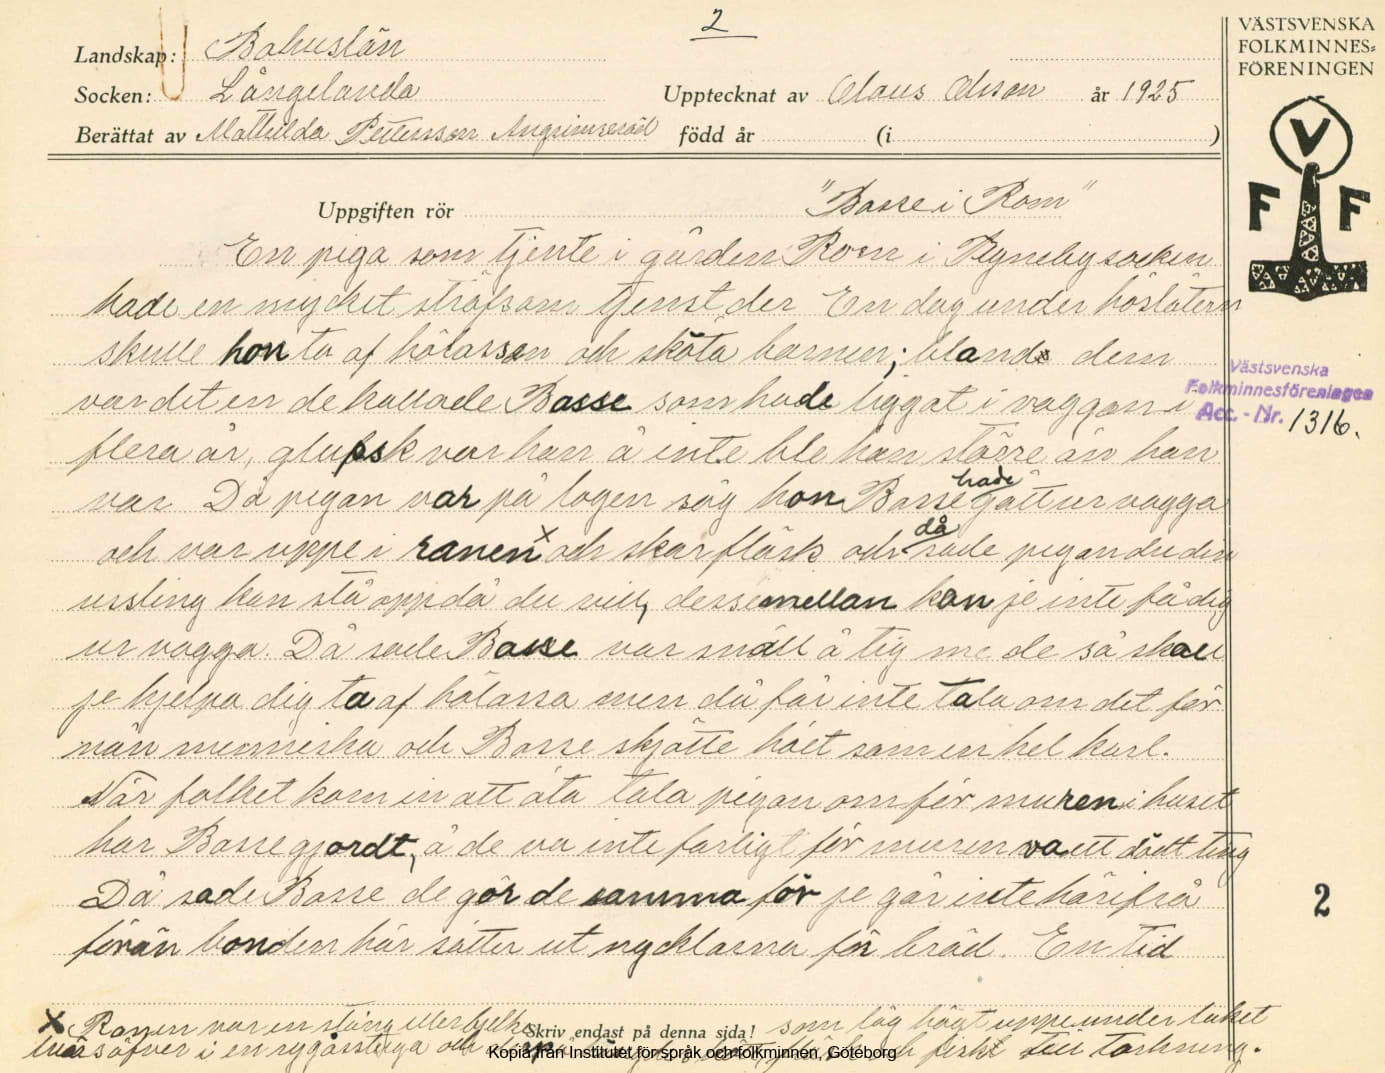 2
VÄSTSVENSKA
FOLKMINNES=
FÖRENINGEN
Landskap: Bohuslän
Socken: Långelanda
Upptecknat av Claus Olsson år 1925
Berättat av Mathilda Pettersson Angrimseröd född år (i )
V
F F
Uppgiften rör "Basse i Rom"
En piga som tjente i gården Rom i Myckleby socken
hade en mycket sträfsam tjenst der En dag under höslåtern
skulle hon ta af hölassen och sköta barnen; bland dem
var det en de kallade Basse som hade liggat i vaggan i
flera år, glupsk var han å inte ble han större än han
var. Då pigan var på logen såg hon Basse hade gått ur vagga
och var uppe i ranen x och skar fläsk och då sade pigan du din
ussling kan stå opp då du vill, dessemellan kan je inte få dig
ur vagga. Då sade Basse var snäll å tig me de så skall
je hjelpa dig ta af hölassa men du får inte tala om det för
nån menniska och Basse skjötte höet som en hel karl.
När folket kom in att äta tala pigan om för muren i huset
har Basse gjordt, å de va inte farligt för muren va ett dödt ting
Då sade Basse de gör de samma för je går inte härifrå
förän bonden här sätter ut nycklarna för bröd. En tid
Västsvenska
Folkminnesföreningen
Acc. - Nr. 1316.
2
x Ranen var en stång eller bjelke som låg högt uppe under taket
Skriv endast på denna sida!
tvärsöfver i en ryggåsstuga och fisk till torkning.
Kopia från Institutet för språk och folkminnen, Göteborg